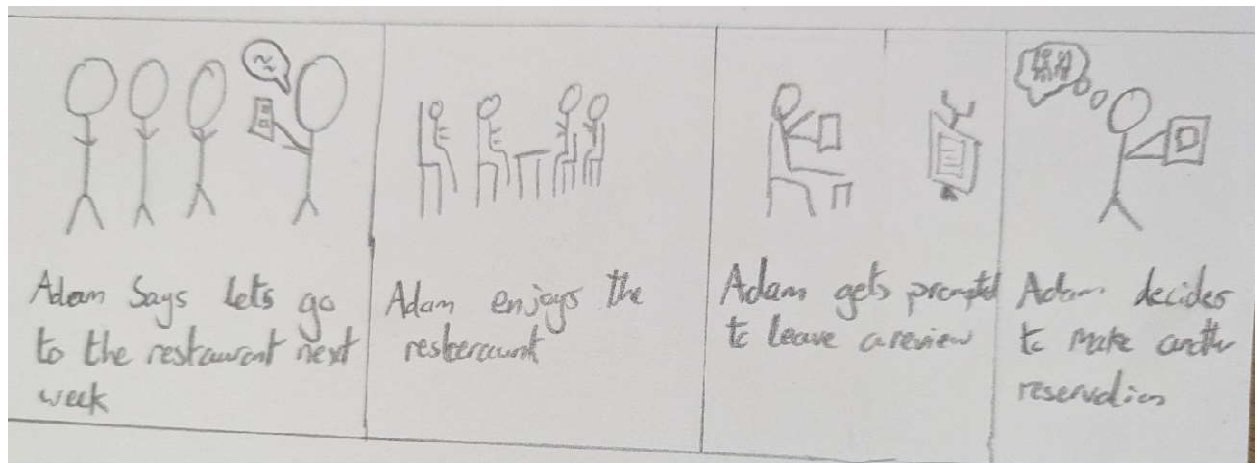 Adam Says let's go
to the restaurant next
week
Adam enjoys the
resteraunt
Adam gets prompted
to leave a review
Adam decides
to make another
reservation